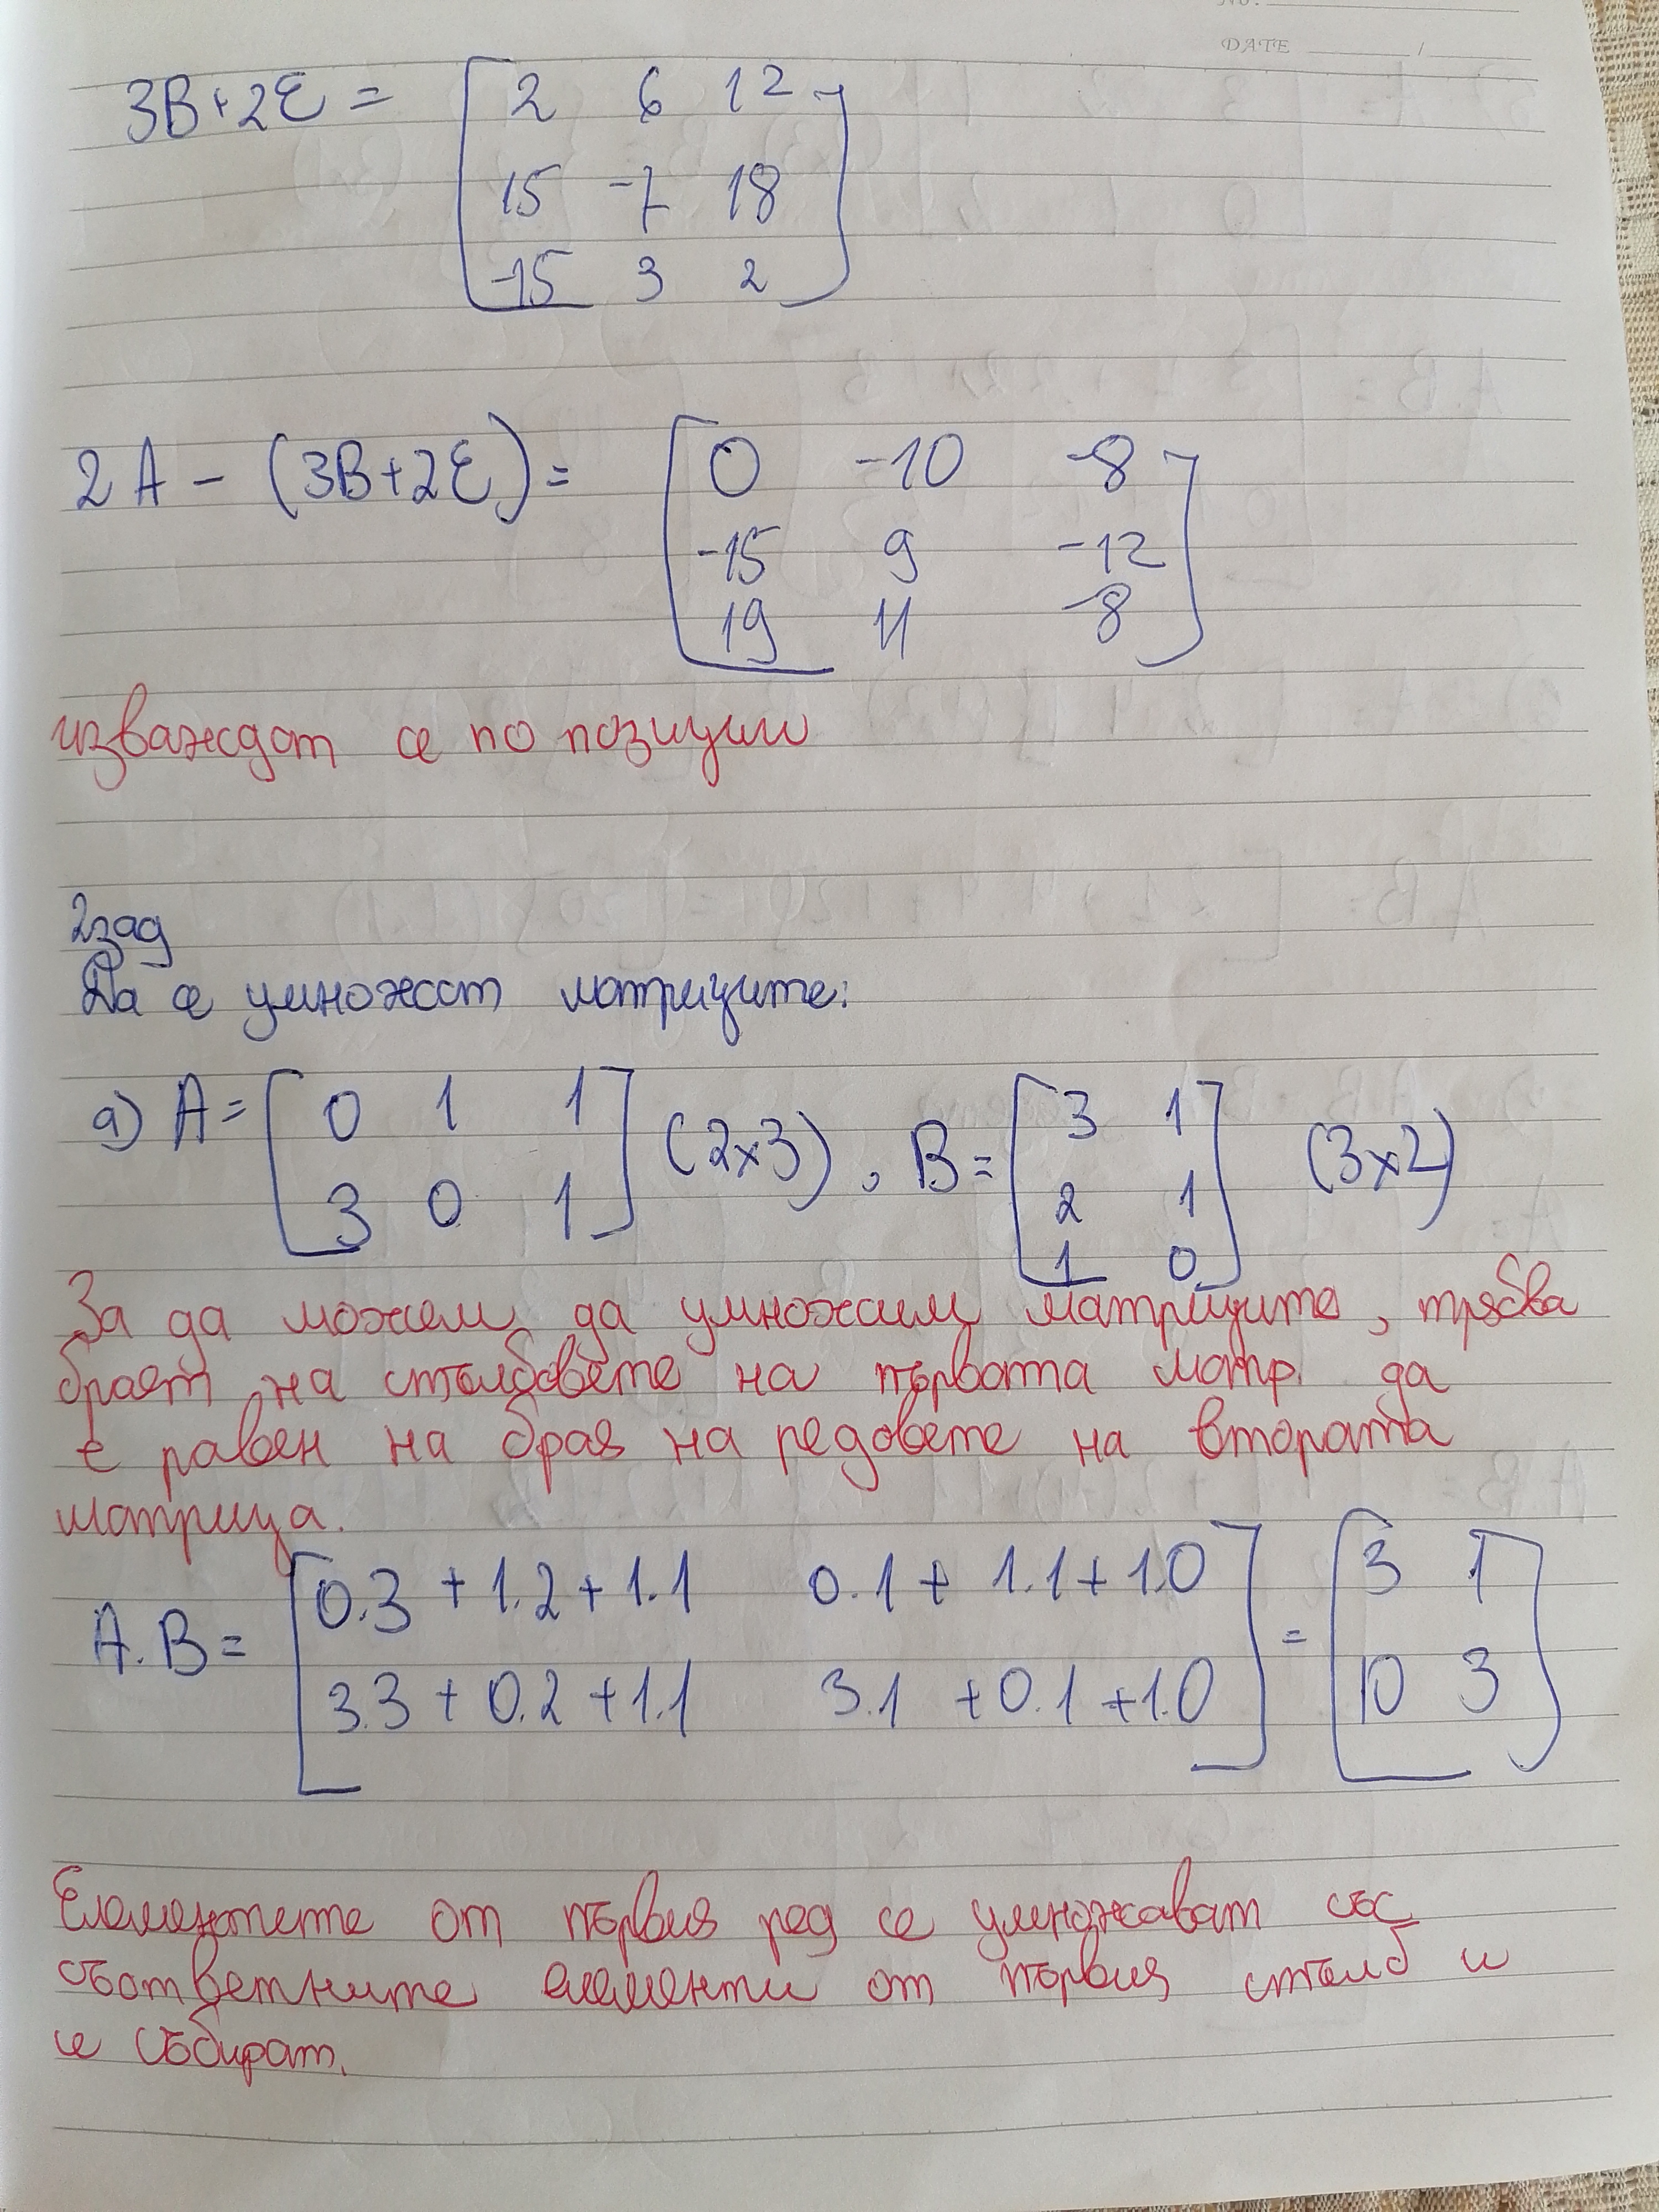 No.
DATE /
3B+2E = [ 2 6 12
15 -7 18
-15 3 2 ]
2A - (3B+2E) = [ 0 -10 -8
-15 9 -12
19 11 -8 ]
изваждат се по позиции
2зад
Да се умножат матриците:
а) A = [ 0 1 1 (2x3), B = [ 3 1 (3x2)
3 0 1 ] 2 1
1 0 ]
За да можем да умножим матриците, трябва
броят на стълбовете на първата матр. да
е равен на броя на редовете на втората
матрица.
A.B = [ 0.3 + 1.2 + 1.1 0.1 + 1.1 + 1.0 = [ 3 1
3.3 + 0.2 + 1.1 3.1 + 0.1 + 1.0 ] 10 3 ]
Елементите от първия ред се умножават със
съответните елементи от първия стълб и
се събират.